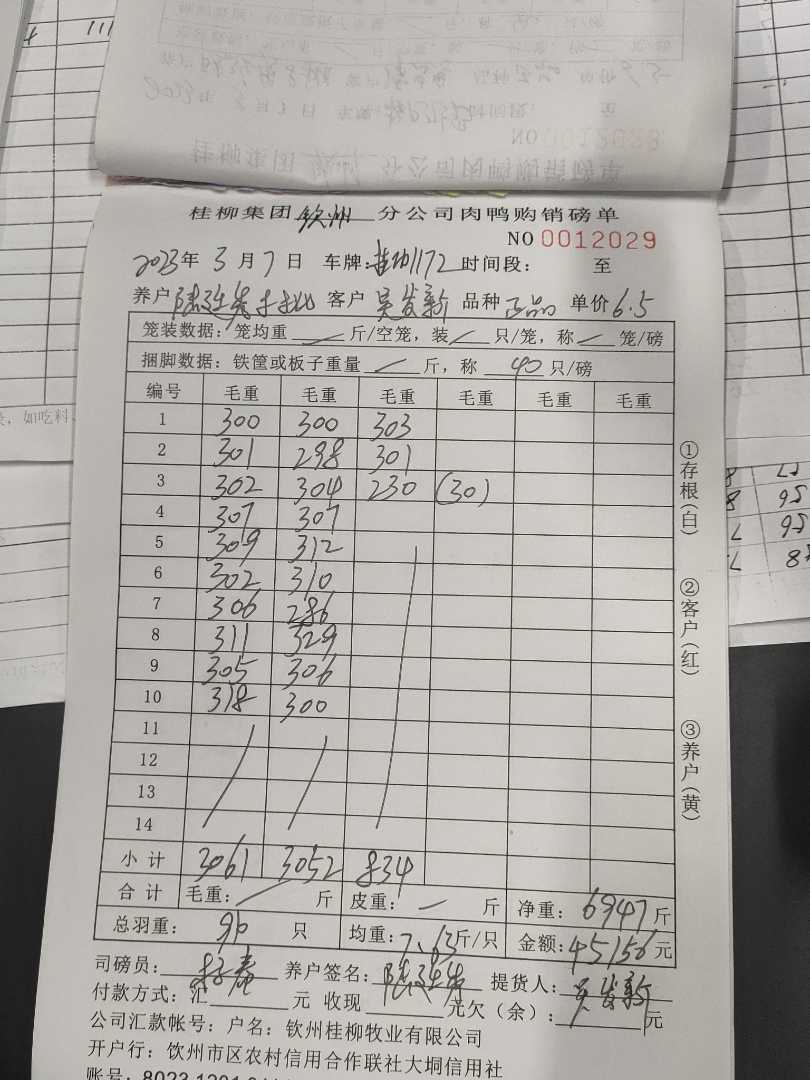 桂柳集团 钦州 分公司肉鸭购销磅单
NO 0012029
2023年 3月 7日 车牌: 1172 时间段: 至
养户 客户 吴发新 品种 正品 单价 6.5
笼装数据: 笼均重 / 斤/空笼, 装 / 只/笼, 称 / 笼/磅
捆脚数据: 铁筐或板子重量 / 斤, 称 40 只/磅
编号 毛重 毛重 毛重 毛重 毛重 毛重
1 300 300 303
2 301 298 301
3 302 304 230 (30)
4 307 307
5 309 312
6 302 310
7 306 286
8 311 329
9 305 306
10 318 300
11
12
13
14
小计 3061 3052 834
合计 毛重: / 斤 皮重: / 斤 净重: 6947 斤
总羽重: 只 均重: 7.63 斤/只 金额: 45156 元
司磅员: 养户签名: 提货人: 吴发新
付款方式: 汇 元 收现 元欠(余): 元
公司汇款帐号: 户名: 钦州桂柳牧业有限公司
开户行: 钦州市区农村信用合作联社大垌信用社
账号: 8023 1201
①存根(白)
②客户(红)
③养户(黄)